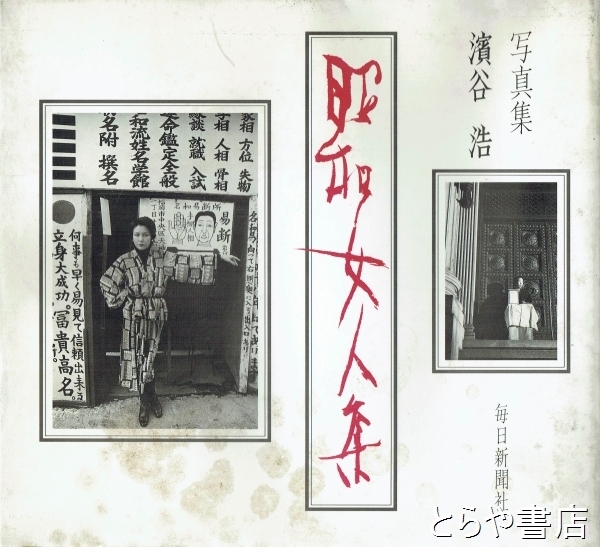 写真集
濱谷 浩
昭和女人集
毎日新聞社
家相 方位 失物
手相 人相 骨相
縁談 就職 入試
命鑑定全般
和流姓名学館
名附 撰名
易断
手相
何事も早く易見て信頼出来る
立身大成功。冨貴高名。
とらや書店